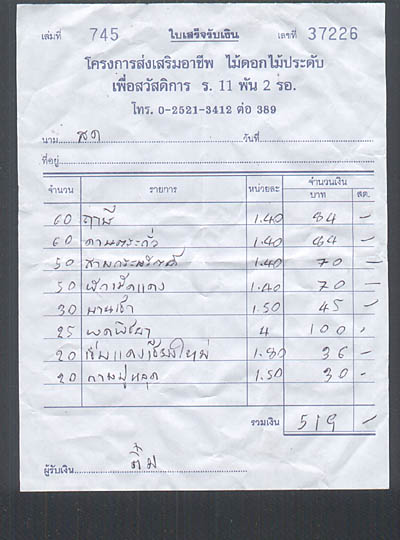 เล่มที่ 745 ใบเสร็จรับเงิน เลขที่ 37226
โครงการส่งเสริมอาชีพ ไม้ดอกไม้ประดับ
เพื่อสวัสดิการ ร. 11 พัน 2 รอ.
โทร. 0-2521-3412 ต่อ 389
นาม สด วันที่
ที่อยู่
จำนวน รายการ หน่วยละ จำนวนเงิน
บาท สต.
60 ฤาษี 1.40 84 -
60 1.40 84 -
50 1.40 70 -
50 1.40 70 -
30 บานเช้า 1.50 45 -
25 4 100 -
20 เข็มแดงเชียงใหม่ 1.80 36 -
20 1.50 30 -
รวมเงิน 519 -
ผู้รับเงิน ติ๋ม